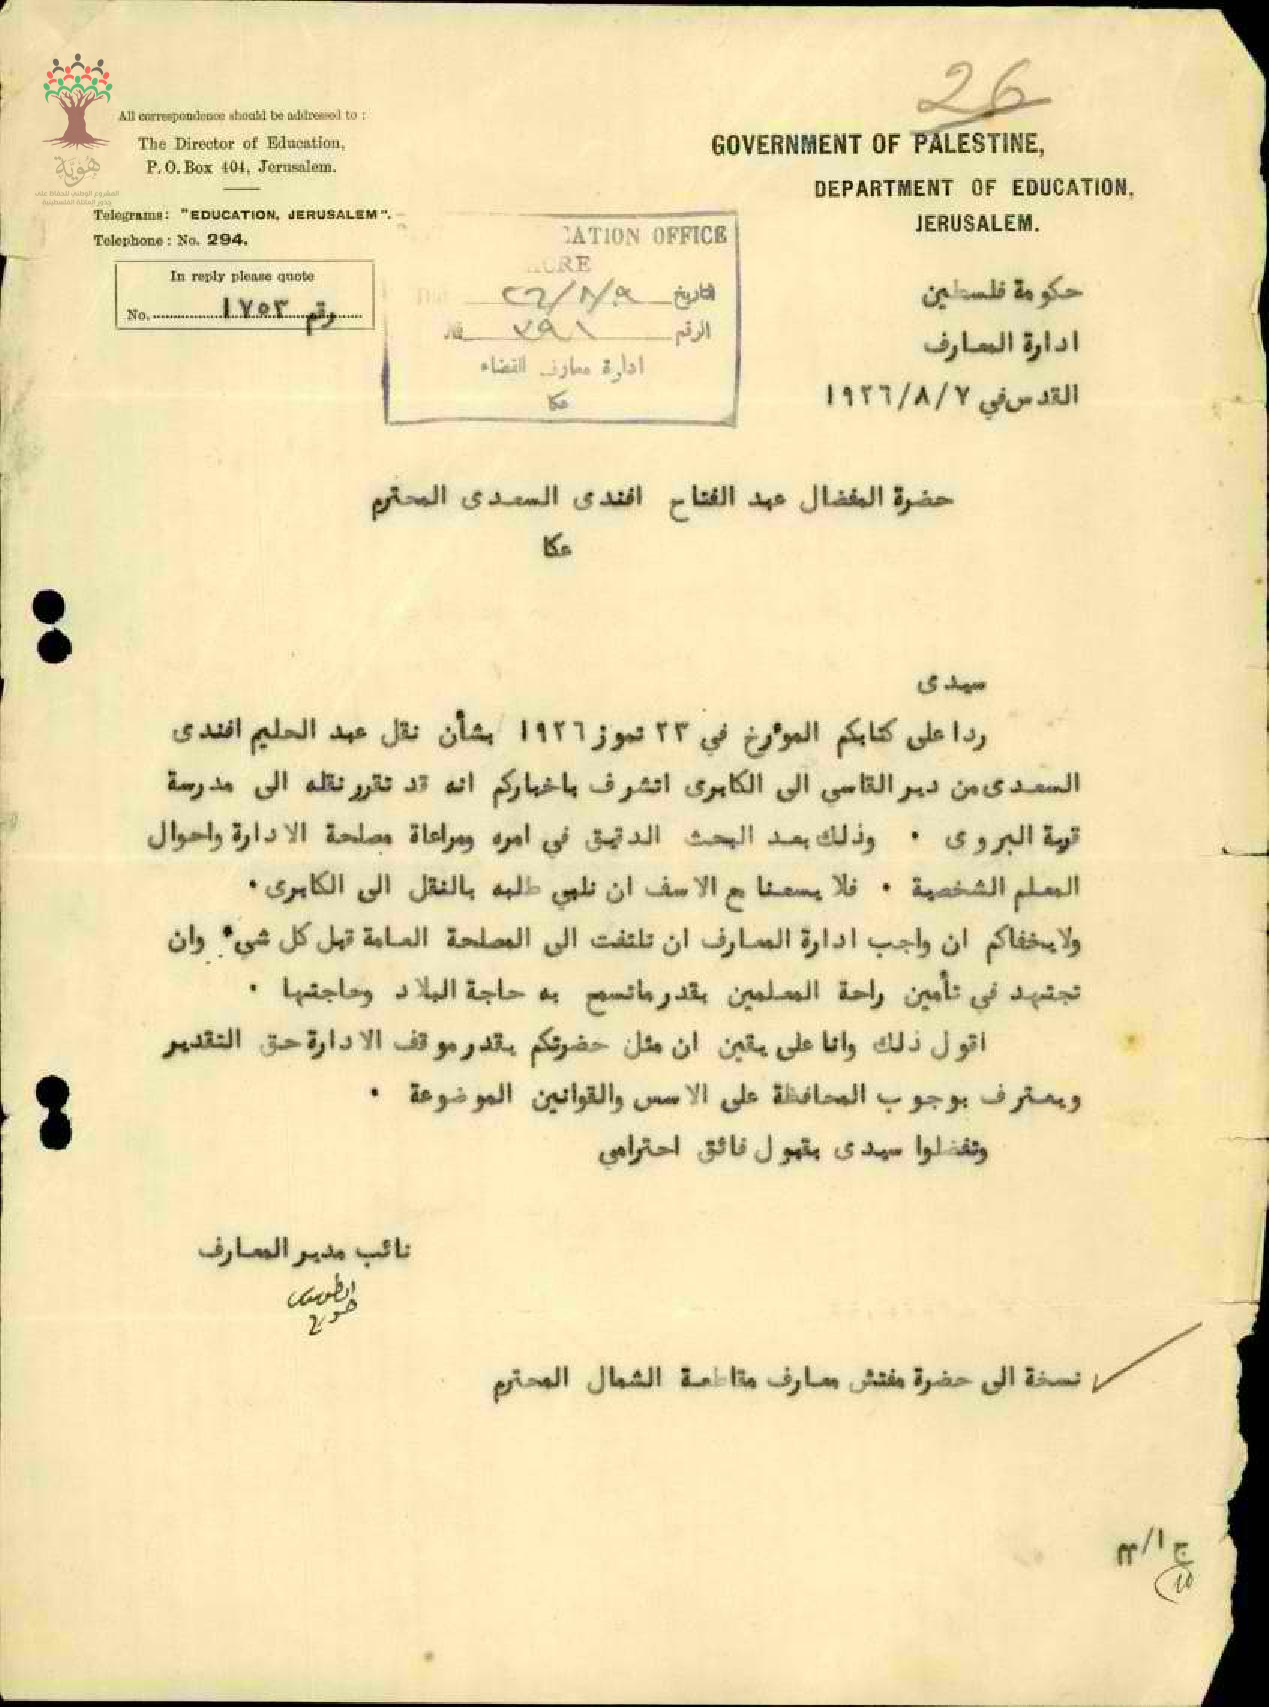 26
All correspondence should be addressed to :
The Director of Education,
P. O. Box 404, Jerusalem.
Telegrams: "EDUCATION, JERUSALEM".
Telephone : No. 294.
In reply please quote
No. رقم ١٧٥٣
GOVERNMENT OF PALESTINE,
DEPARTMENT OF EDUCATION,
JERUSALEM.
هوية
CATION OFFICE
ACRE
التاريخ ٢٦/٨/٩
الرقم ٧٩١
ادارة معارف القضاء
عكا
حكومة فلسطين
ادارة المعارف
القدس في ١٩٢٦/٨/٧
حضرة المفضال عبد الفتاح افندى السعدى المحترم
عكا
سيدى
ردا على كتابكم المؤرخ في ٢٣ تموز ١٩٢٦ بشأن نقل عبد الحليم افندى
السعدى من دير القاسي الى الكابرى اتشرف باخباركم انه قد تقرر نقله الى مدرسة
قرية البروى ٠ وذلك بعد البحث الدقيق في امره ومراعاة مصلحة الادارة واحوال
المعلم الشخصية ٠ فلا يسعنا مع الاسف ان نلبي طلبه بالنقل الى الكابرى ٠
ولا يخفاكم ان واجب ادارة المعارف ان تلتفت الى المصلحة العامة قبل كل شيء وان
تجتهد في تأمين راحة المعلمين بقدر ماتسمح به حاجة البلاد وحاجتها ٠
اقول ذلك وانا على يقين ان مثل حضرتكم يقدر موقف الادارة حق التقدير
ويعترف بوجوب المحافظة على الاسس والقوانين الموضوعة ٠
وتفضلوا سيدى بقبول فائق احترامي
نائب مدير المعارف
نسخة الى حضرة مفتش معارف مقاطعة الشمال المحترم